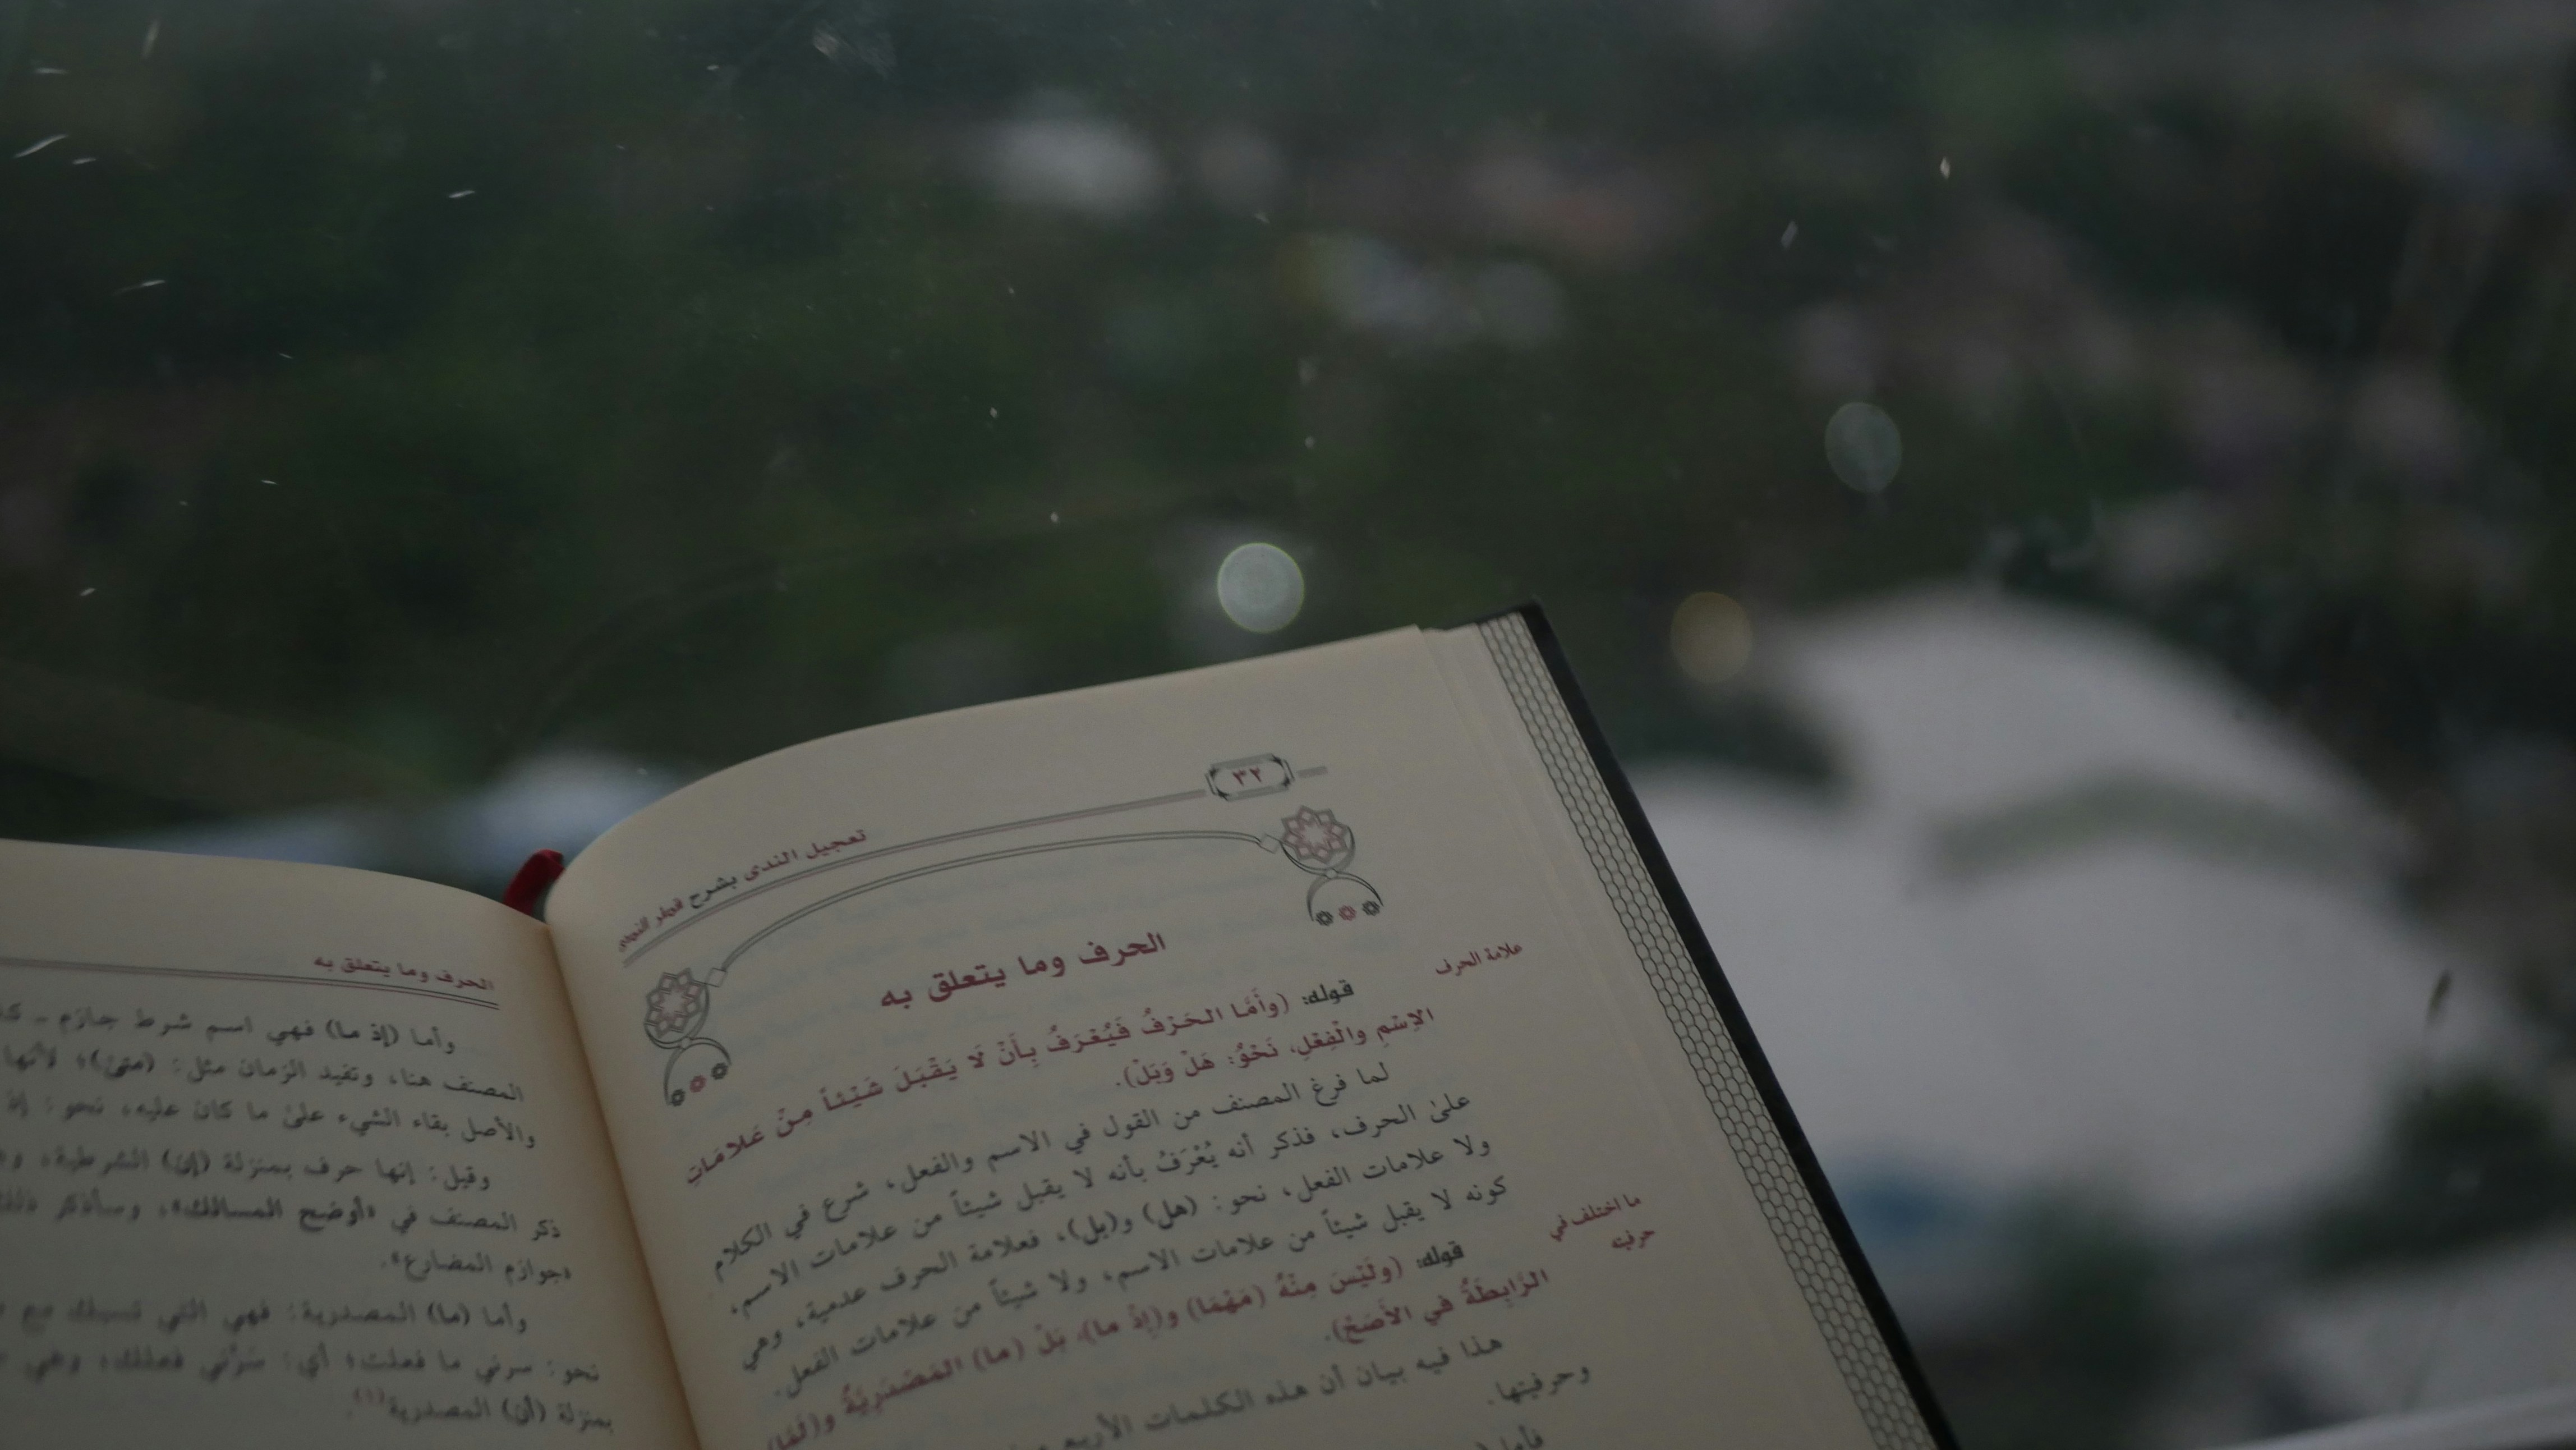 ٣٢
تعجيل الندى بشرح قطر الندى
الحرف وما يتعلق به
علامة الحرف
قوله: (وأَمَّا الحَرْفُ فَيُعْرَفُ بِأَنْ لَا يَقْبَلَ شَيْئاً مِنْ عَلامَاتِ
الاِسْمِ والْفِعْلِ، نَحْوُ: هَلْ وَبَلْ).
لما فرغ المصنف من القول في الاسم والفعل، شرع في الكلام
علىٰ الحرف، فذكر أنه يُعْرَفُ بأنه لا يقبل شيئاً من علامات الاسم،
ولا علامات الفعل، نحو: (هل) و(بل)، فعلامة الحرف عدمية، وهي
كونه لا يقبل شيئاً من علامات الاسم، ولا شيئاً من علامات الفعل.
ما اختلف في
حرفيته
قوله: (ولَيْسَ مِنْهُ (مَهْمَا) و(إِذْ ما)، بَلْ (ما) المَصْدَرِيَّةُ و(لَمَّا)
الرَّابِطَةُ في الأَصَحِّ).
هذا فيه بيان أن هذه الكلمات الأربع
وحرفيتها.
الحرف وما يتعلق به
وأما (إذ ما) فهي اسم شرط جازم ـ
المصنف هنا، وتفيد الزمان مثل: (متىٰ)؛ لأنها
والأصل بقاء الشيء علىٰ ما كان عليه، نحو: إذ
وقيل: إنها حرف بمنزلة (إن) الشرطية،
ذكر المصنف في «أوضح المسالك»، وسأذكر ذلك
«جوازم المضارع».
وأما (ما) المصدرية: فهي التي تسبك مع
نحو: سرني ما فعلت؛ أي: سَرَّني فعلك، وهي
بمنزلة (أن) المصدرية(١).